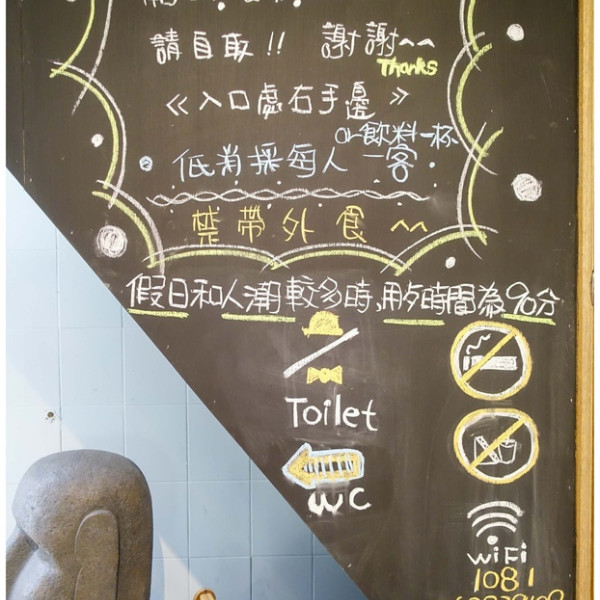 請自取!! 謝謝^^
Thanks
《入口處右手邊》
or飲料一杯
低消採每人一客.
禁帶外食^^
假日和人潮較多時,用歺時間為90分
Toilet
WC
WiFi
1081